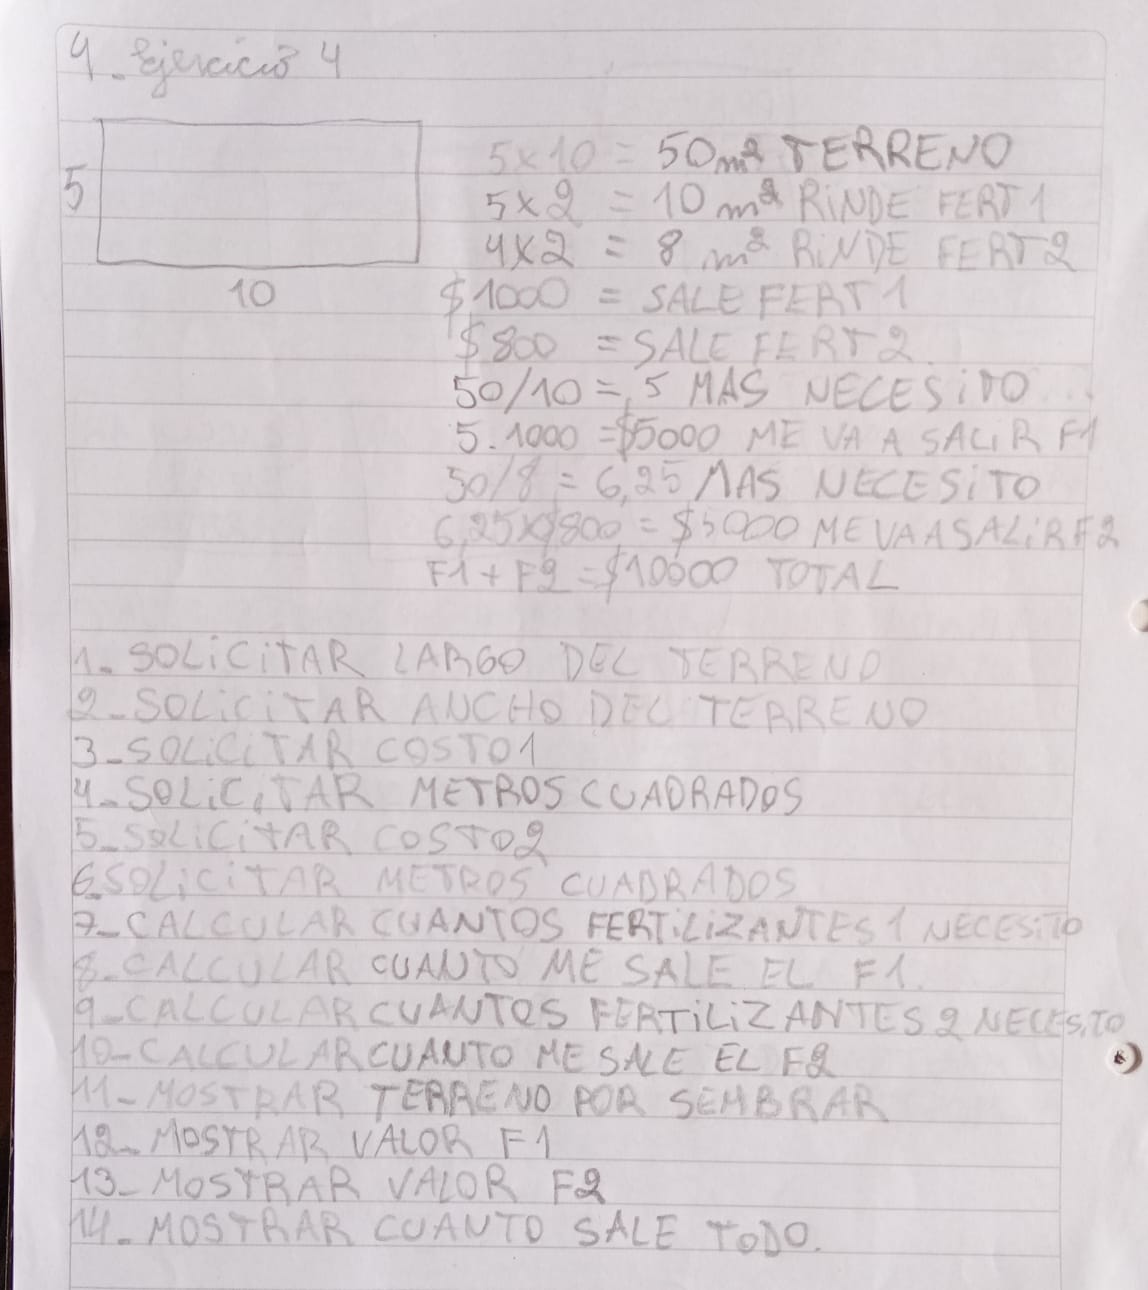 4- Ejercicio 4
5
10
5x10 = 50m² TERRENO
5x2 = 10 m² RiNDE FERT 1
4x2 = 8 m² RiNDE FERT 2
$1000 = SALE FERT 1
$800 = SALE FERT 2
50/10 = 5 MAS NECESiTO
5.1000 = $5000 ME VA A SALiR F1
50/8 = 6,25 MAS NECESiTO
6,25x$800 = $5000 ME VA A SALiR F2
F1 + F2 = $10000 TOTAL
1- SOLiCiTAR LARGO DEL TERRENO
2- SOLiCiTAR ANCHO DEL TERRENO
3- SOLiCiTAR COSTO1
4- SOLiCiTAR METROS CUADRADOS
5- SOLiCiTAR COSTO2
6- SOLiCiTAR METROS CUADRADOS
7- CALCULAR CUANTOS FERTiLiZANTES 1 NECESiTO
8- CALCULAR CUANTO ME SALE EL F1.
9- CALCULAR CUANTOS FERTiLiZANTES 2 NECESiTO
10- CALCULAR CUANTO ME SALE EL F2
11- MOSTRAR TERRENO POR SEMBRAR
12- MOSTRAR VALOR F1
13- MOSTRAR VALOR F2
14- MOSTRAR CUANTO SALE TODO.